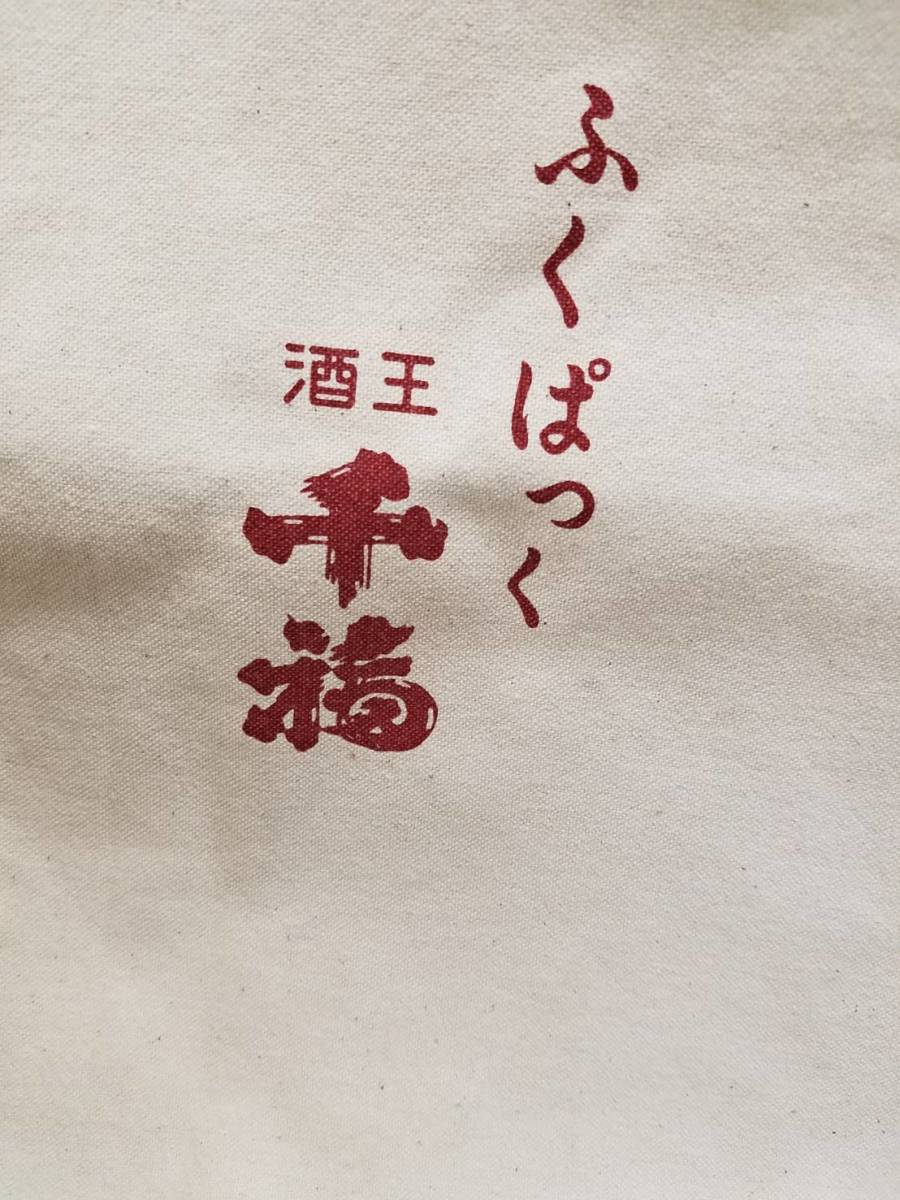 ふくぱっく
酒王
千福